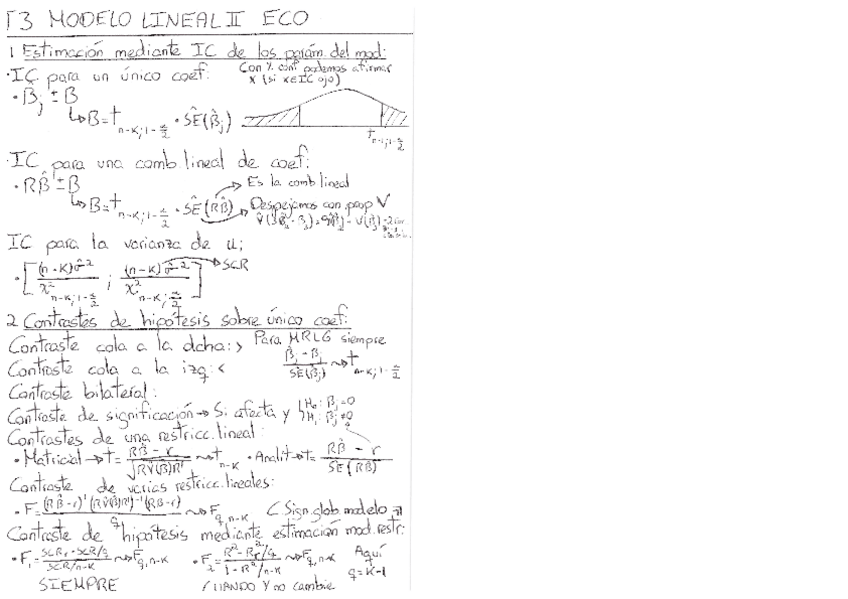 T3 MODELO LINEAL II ECO
1 Estimación mediante IC de los parám. del mod:
·IC para un único coef:
Con % conf podemos afirmar
X (si X∈IC ojo)
• β̂j ± B
↳ B = t n-k; 1-α/2 · ŜE(β̂j)
t n-k; 1-α/2
·IC para una comb. lineal de coef:
• Rβ̂ ± B
→ Es la comb lineal
↳ B = t n-k; 1-α/2 · ŜE(Rβ̂) → Despejamos con prop V
IC para la varianza de ui
• [ (n-k)σ̂² / χ² n-k; 1-α/2 ; (n-k)σ̂² / χ² n-k; α/2 ] → SCR
2 Contrastes de hipótesis sobre único coef:
Contraste cola a la dcha: > Para MRLG siempre
Contraste cola a la izq: < β̂j - βj / ŜE(β̂j) ~> t n-k; 1-α/2
Contraste bilateral:
Contraste de significación → Si afecta y { H0: βj = 0
H1: βj ≠ 0
Contrastes de una restricc. lineal:
• Matricial → t = Rβ̂ - r / √RV̂(β̂)R' ~> t n-k • Analít → t = Rβ̂ - r / ŜE(Rβ̂)
Contraste de varias restricc. lineales:
• F = (Rβ̂-r)' (RV̂(β̂)R')⁻¹ (Rβ̂-r) / q ~> F q, n-k C. Sign. glob. modelo
Contraste de hipótesis mediante estimación mod. restr:
• F1 = SCRr - SCR/q / SCR/n-k ~> F q, n-k • F2 = R² - Rr²/q / 1 - R²/n-k ~> F q, n-k Aquí
q = k-1
SIEMPRE CUANDO Y no cambie